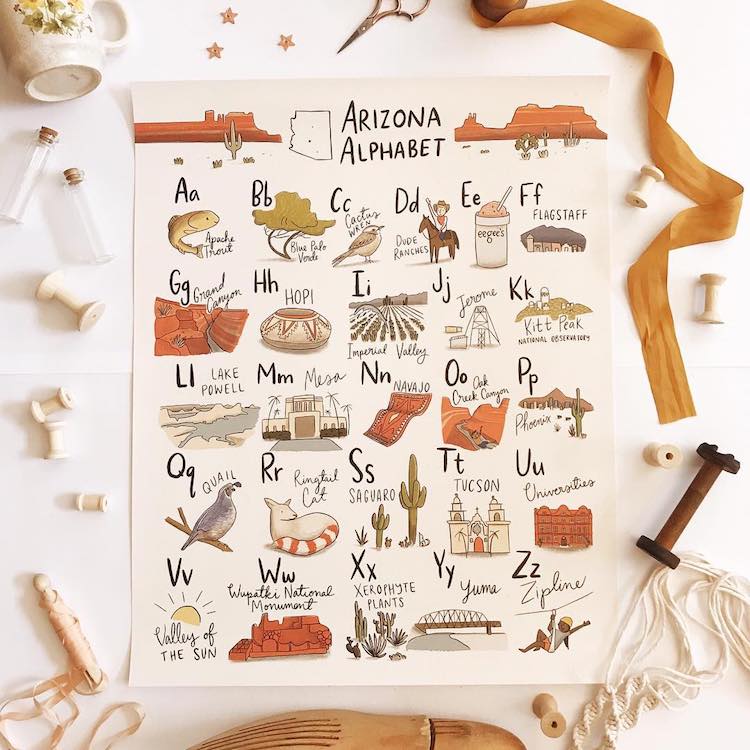 ARIZONA
ALPHABET
Aa
Apache
Trout
Bb
Blue Palo
Verde
Cc
Cactus
WREN
Dd
DUDE
RANCHES
Ee
eegee's
Ff
FLAGSTAFF
Gg
Grand
Canyon
Hh
HOPI
Ii
Imperial Valley
Jj
Jerome
Kk
Kitt Peak
NATIONAL OBSERVATORY
Ll
LAKE
POWELL
Mm
Mesa
Nn
NAVAJO
Oo
Oak
Creek Canyon
Pp
Phoenix
Qq
QUAIL
Rr
Ringtail
Cat
Ss
SAGUARO
Tt
TUCSON
Uu
Universities
Vv
Valley of
THE SUN
Ww
Wupatki National
Monument
Xx
XEROPHYTE
PLANTS
Yy
Yuma
Zz
Zipline